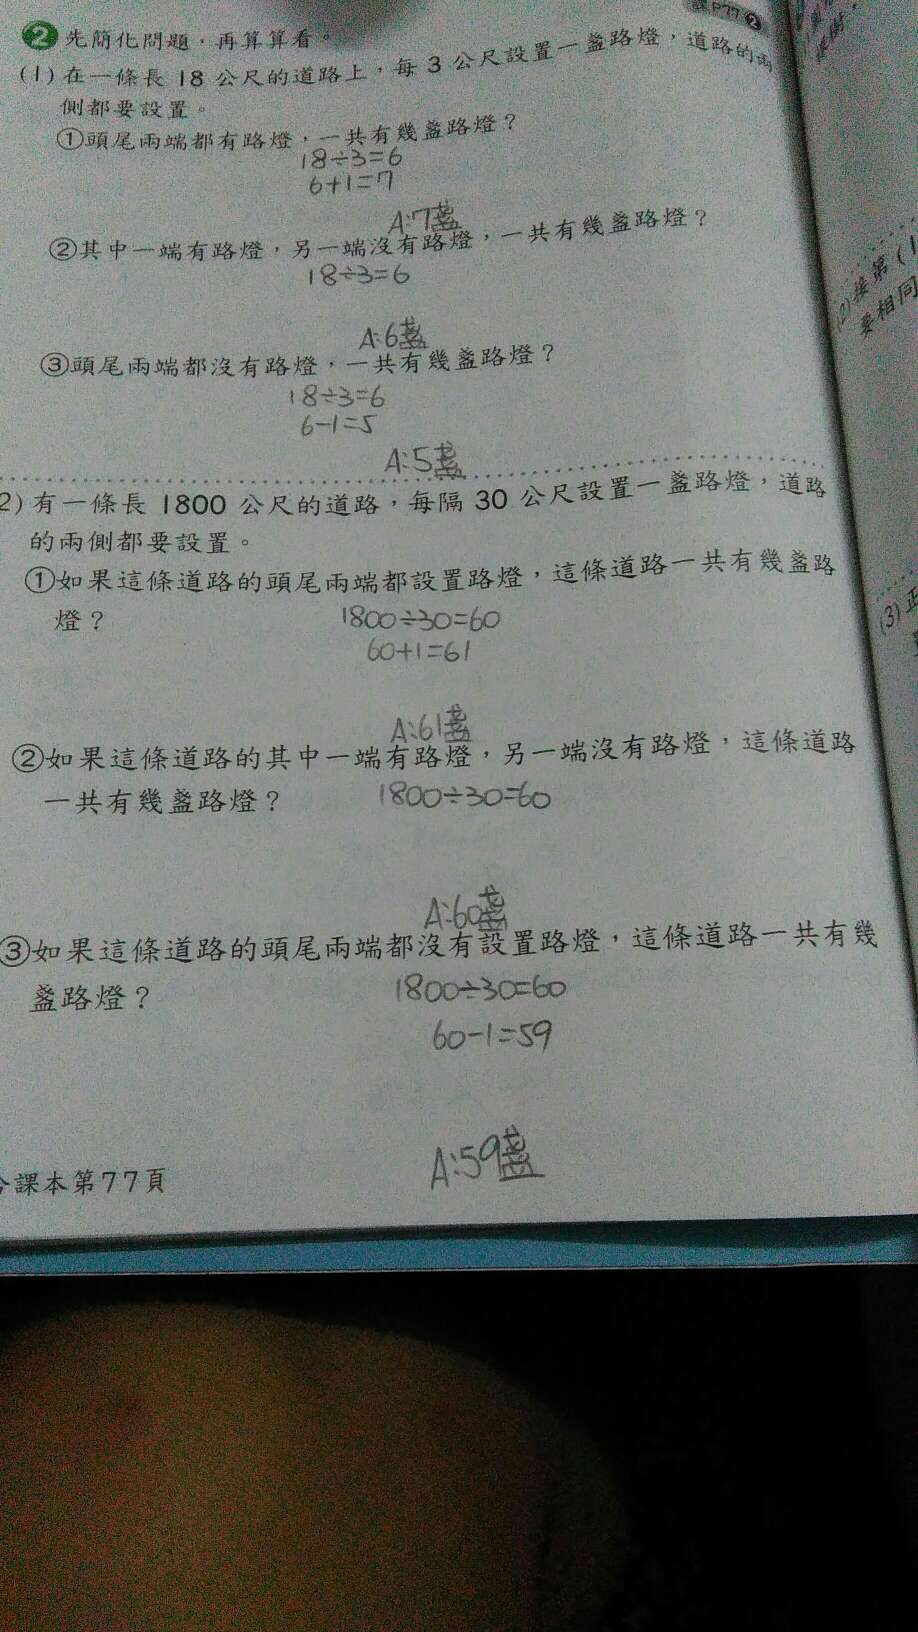 課P77②
2 先簡化問題，再算算看。
(1) 在一條長 18 公尺的道路上，每 3 公尺設置一盞路燈，道路的兩
側都要設置。
①頭尾兩端都有路燈，一共有幾盞路燈？
18÷3=6
6+1=7
A:7盞
②其中一端有路燈，另一端沒有路燈，一共有幾盞路燈？
18÷3=6
A:6盞
③頭尾兩端都沒有路燈，一共有幾盞路燈？
18÷3=6
6-1=5
A:5盞
2) 有一條長 1800 公尺的道路，每隔 30 公尺設置一盞路燈，道路
的兩側都要設置。
①如果這條道路的頭尾兩端都設置路燈，這條道路一共有幾盞路
燈？
1800÷30=60
60+1=61
A:61盞
②如果這條道路的其中一端有路燈，另一端沒有路燈，這條道路
一共有幾盞路燈？
1800÷30=60
A:60盞
③如果這條道路的頭尾兩端都沒有設置路燈，這條道路一共有幾
盞路燈？
1800÷30=60
60-1=59
A:59盞
課本第77頁
(2) 接第(1
要相同
(3)